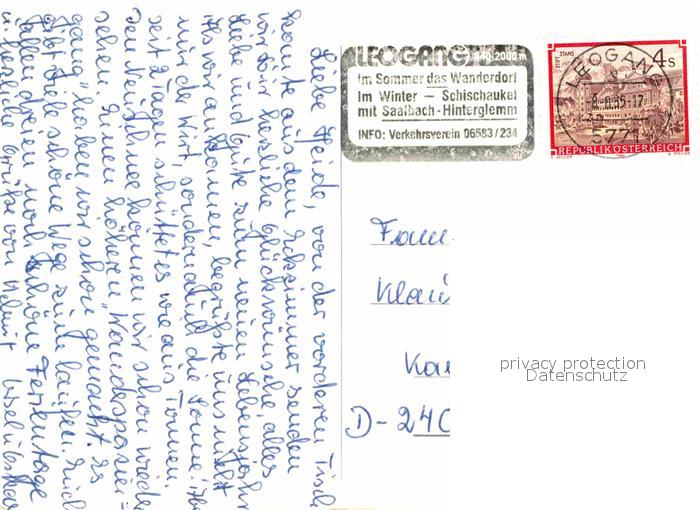 Liebe Heide, von der vorderen
heute aus dem Eckzimmer senden
wir Dir herzliche Glückwünsche, alles
Liebe und Gute zum neuen Lebensjahr
Als wir ankamen, begrüßte uns nicht
nur der Wirt, sondern auch die Sonne!
seit 2 Tagen schüttet es wie aus Tonnen.
den Neuschnee können wir schon wieder
sehen. Einen höheren
gang" haben wir schon gemacht. Es
gibt viele schöne Wege zum laufen. Euch
allen dreien noch schöne Ferientage
u. herzliche Grüße von Helmut
LEOGANG 840-2000 m
Im Sommer das Wanderdorf
Im Winter — Schischaukel
mit Saalbach-Hinterglemm
INFO: Verkehrsverein 06583/234
STIFT STAMS
4 S
LEOGANG
5771
REPUBLIK ÖSTERREICH
Frau
D-240
privacy protection
Datenschutz